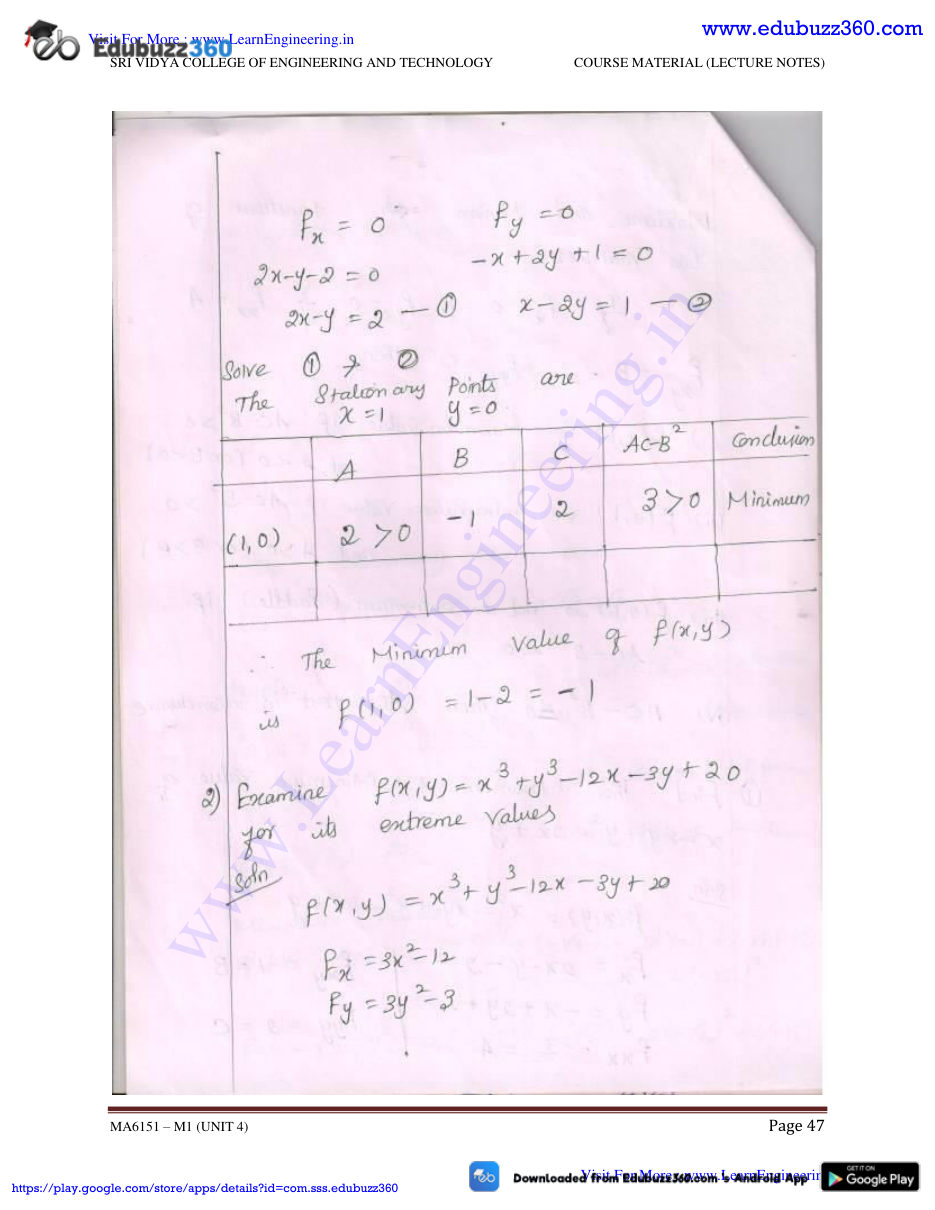 Visit For More : www.LearnEngineering.in
www.edubuzz360.com
Edubuzz360
SRI VIDYA COLLEGE OF ENGINEERING AND TECHNOLOGY COURSE MATERIAL (LECTURE NOTES)
fx = 0 fy = 0
2x-y-2 = 0 -x+2y+1 = 0
2x-y = 2 — ① x-2y = 1 — ②
Solve ① & ②
The Stationary Points are
x=1 y=0
A B C AC-B² Conclusion
(1,0) 2 > 0 -1 2 3 > 0 Minimum
∴ The Minimum Value of f(x,y)
is f(1,0) = 1-2 = -1
2) Examine f(x,y) = x³+y³-12x-3y+20
for its extreme values
Soln
f(x,y) = x³+y³-12x-3y+20
fx = 3x²-12
fy = 3y²-3
www.LearnEngineering.in
MA6151 – M1 (UNIT 4) Page 47
https://play.google.com/store/apps/details?id=com.sss.edubuzz360
Downloaded from EduBuzz360.com 's Android App
Visit For More : www.LearnEngineerin
GET IT ON
Google Play